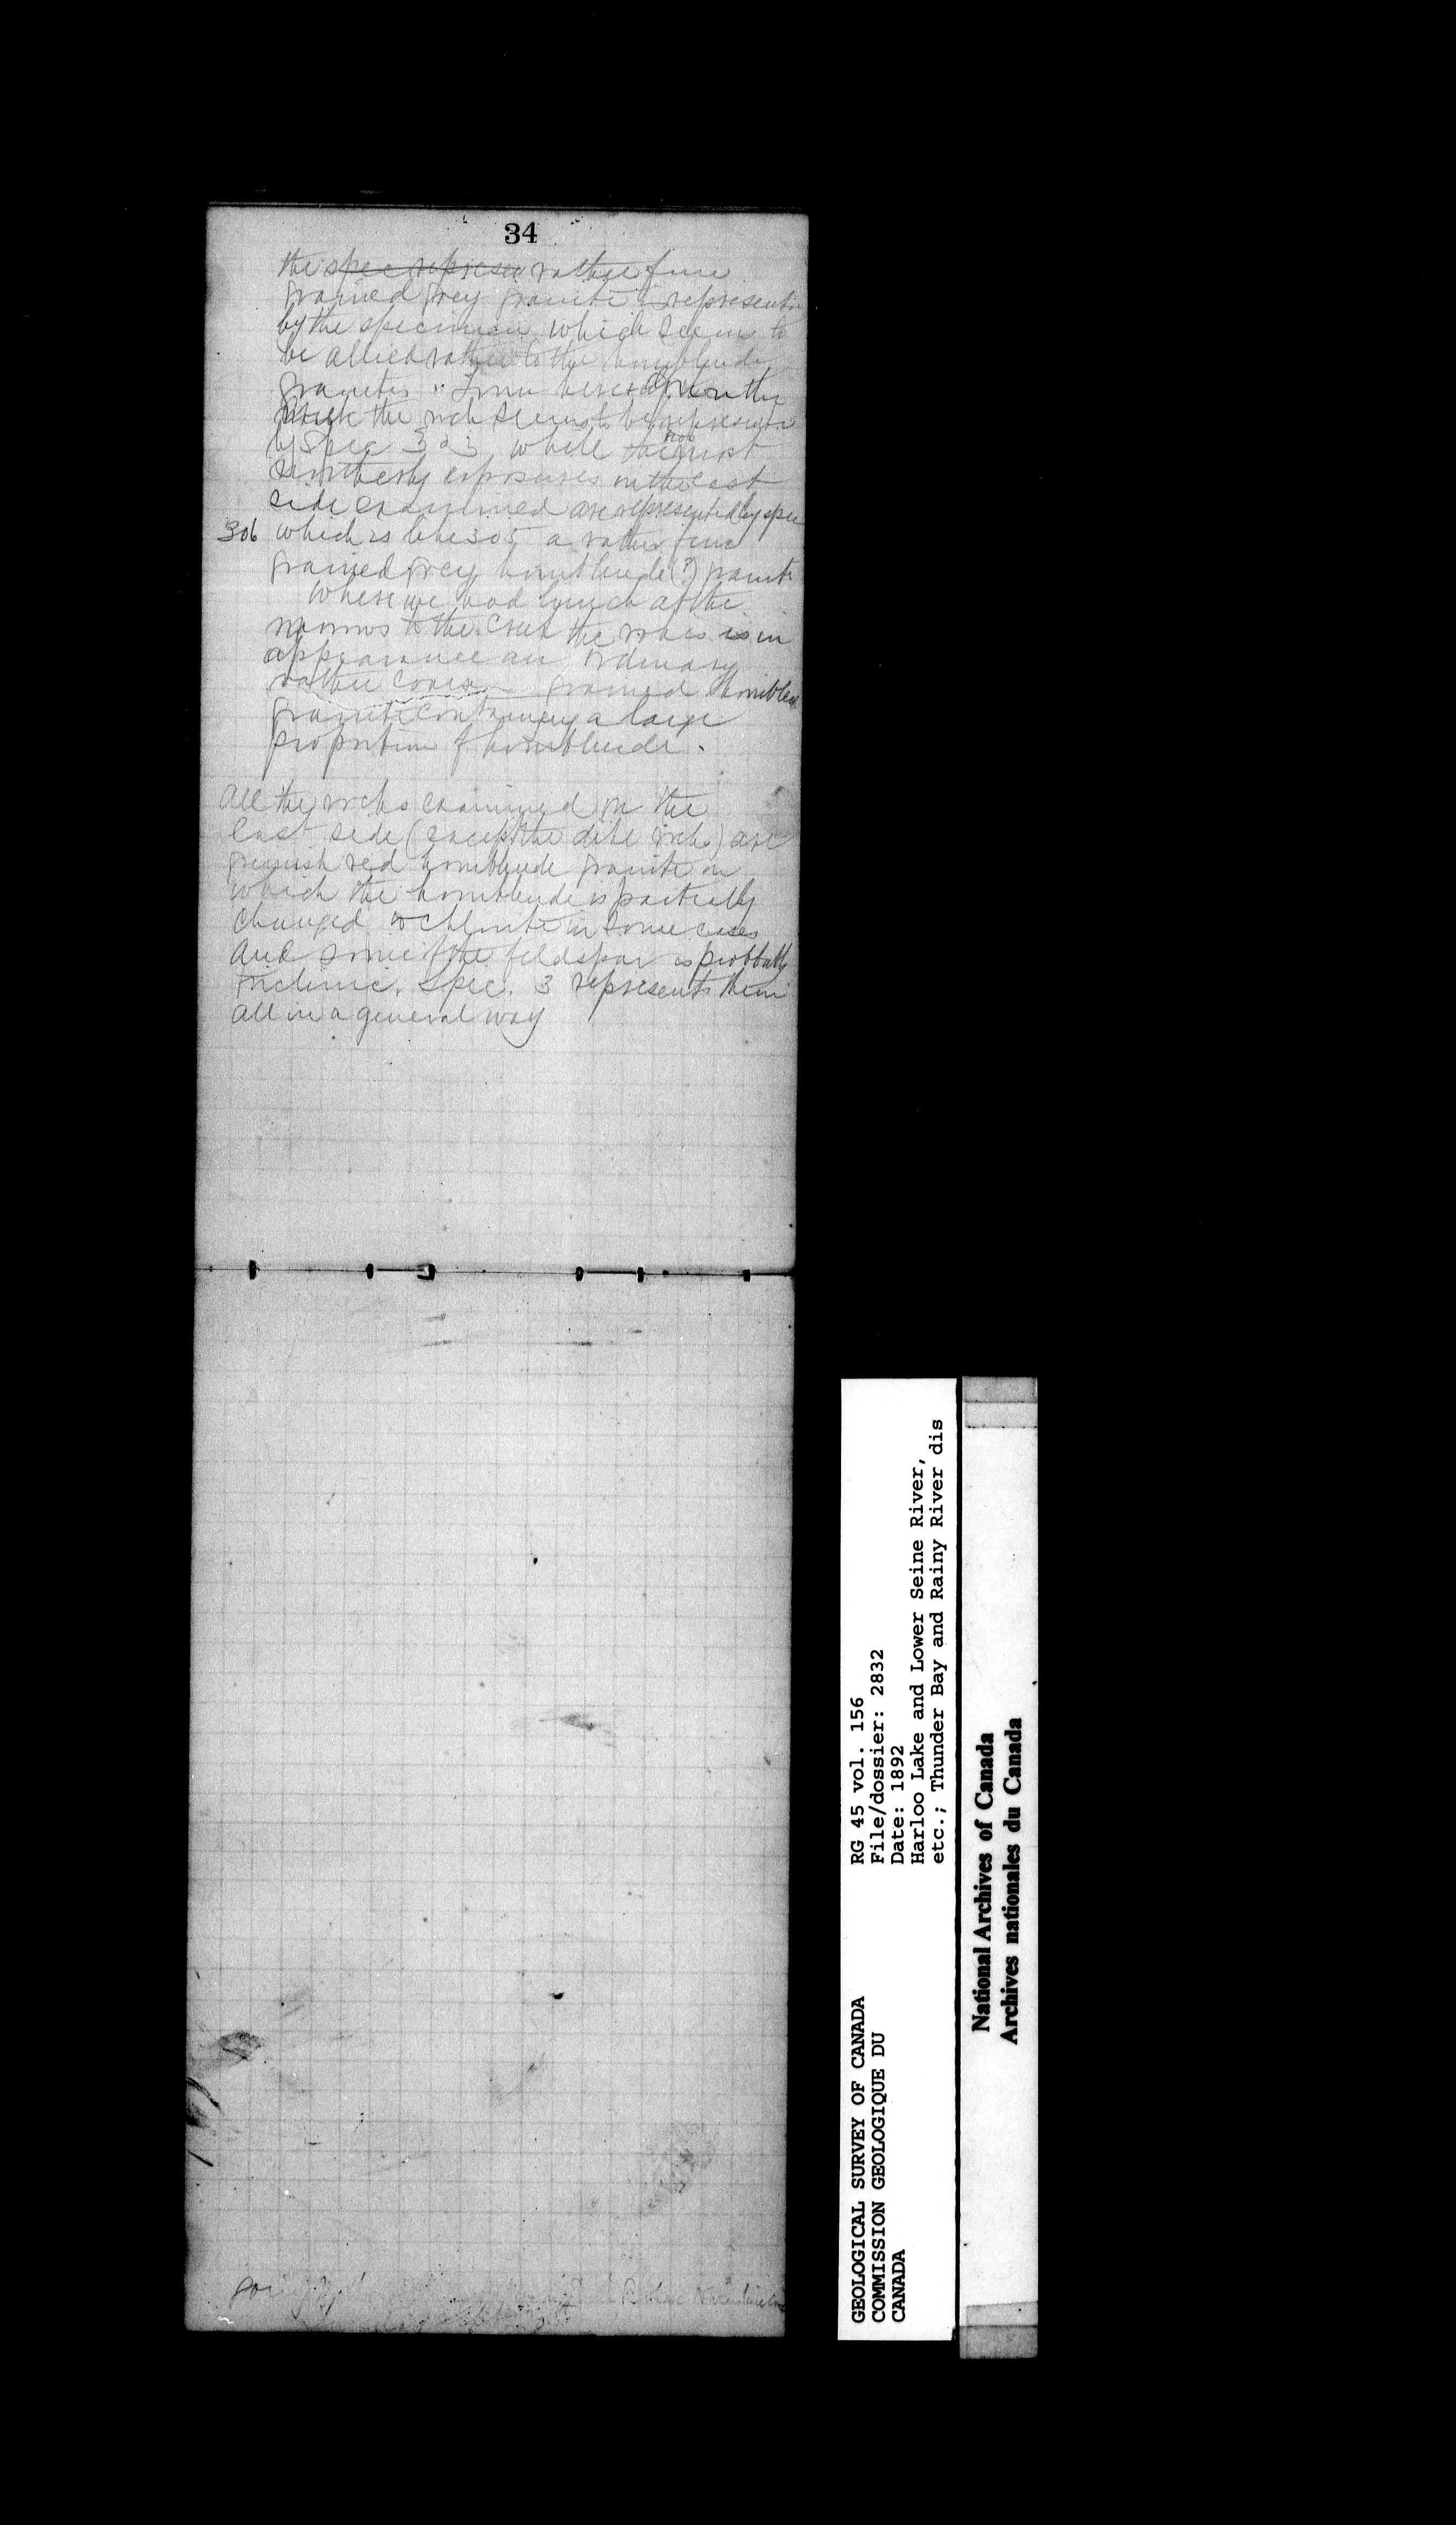 34
the spec represen rather fine
grained grey granite is represented
by the specimen which seems to
be allied rather to the hornblende
granites. From here down the
the rock seems to be represented
by Spec 303 while the most
southerly exposures on the east
side examined are represented by spec
306 which is like 305 a rather fine
grained grey hornblende (?) granite
Where we had lunch at the
narrows to the the rocks is in
appearance an ordinary
rather coarse grained hornblende
granite containing a large
proportion of hornblende.
All the rocks examined on the
East side (except the dike rocks) are
greenish red hornblende granite in
which the hornblende is partially
changed to chlorite in some cases
and some of the feldspar is probbably
triclinic. Spec. 3 represents them
all in a general way
GEOLOGICAL SURVEY OF CANADA
COMMISSION GEOLOGIQUE DU
CANADA
RG 45 vol. 156
File/dossier: 2832
Date: 1892
Harloo Lake and Lower Seine River,
etc.; Thunder Bay and Rainy River dis
National Archives of Canada
Archives nationales du Canada